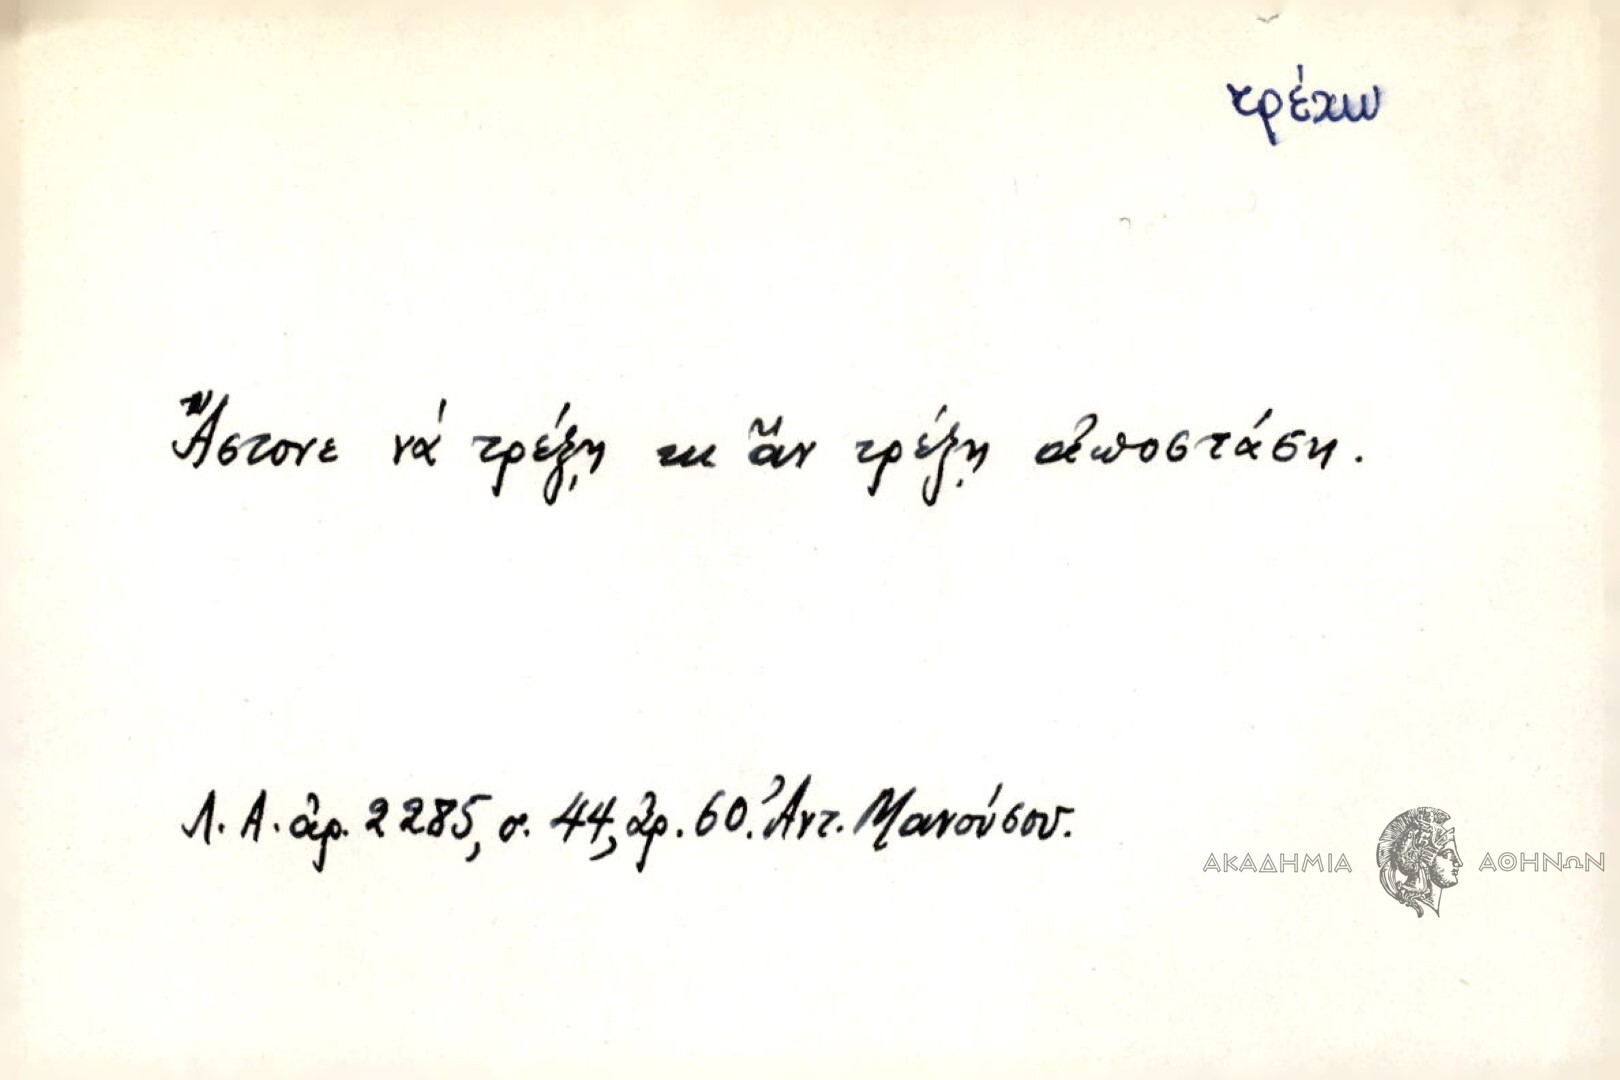 τρέχω
Ἄστονε νά τρέξῃ κι ἄν τρέξῃ ἀποστάση.
Λ. Α. ἀρ. 2285, σ. 44, ἀρ. 60. Ἀντ. Μανούσου.
ΑΚΑΔΗΜΙΑ ΑΘΗΝΩΝ